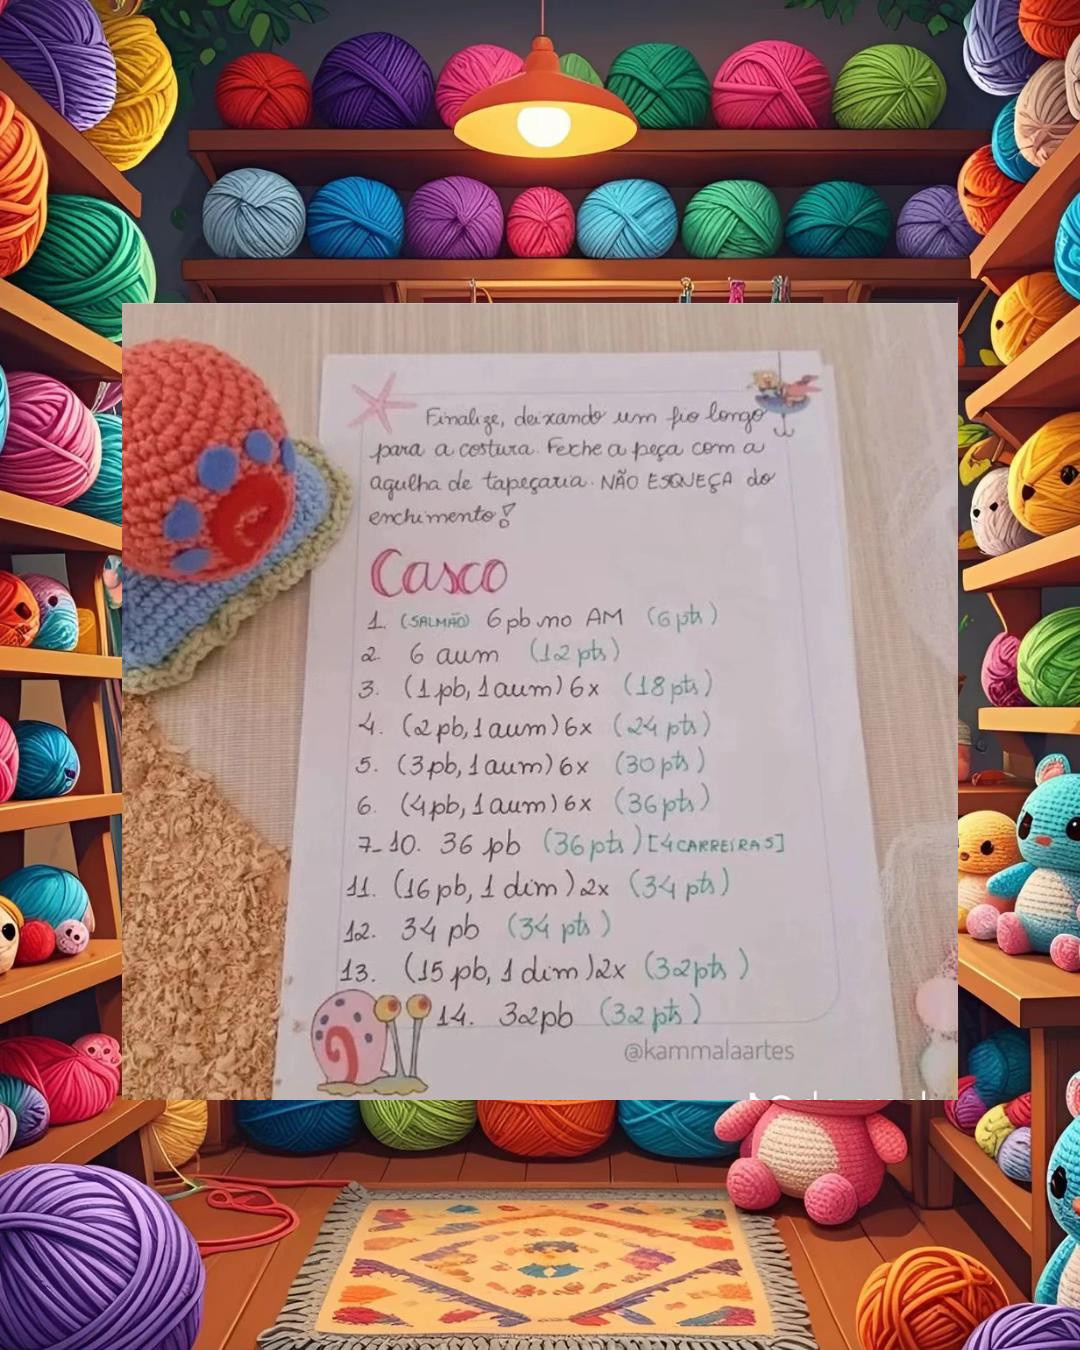 Finalize, deixando um fio longo
para a costura. Feche a peça com a
agulha de tapeçaria. NÃO ESQUEÇA do
enchimento!
Casco
1. (SALMÃO) 6 pb no AM (6 pts)
2. 6 aum (12 pts)
3. (1 pb, 1 aum) 6x (18 pts)
4. (2 pb, 1 aum) 6x (24 pts)
5. (3 pb, 1 aum) 6x (30 pts)
6. (4 pb, 1 aum) 6x (36 pts)
7-10. 36 pb (36 pts) [4 CARREIRAS]
11. (16 pb, 1 dim) 2x (34 pts)
12. 34 pb (34 pts)
13. (15 pb, 1 dim) 2x (32 pts)
14. 32 pb (32 pts)
@kammalaartes